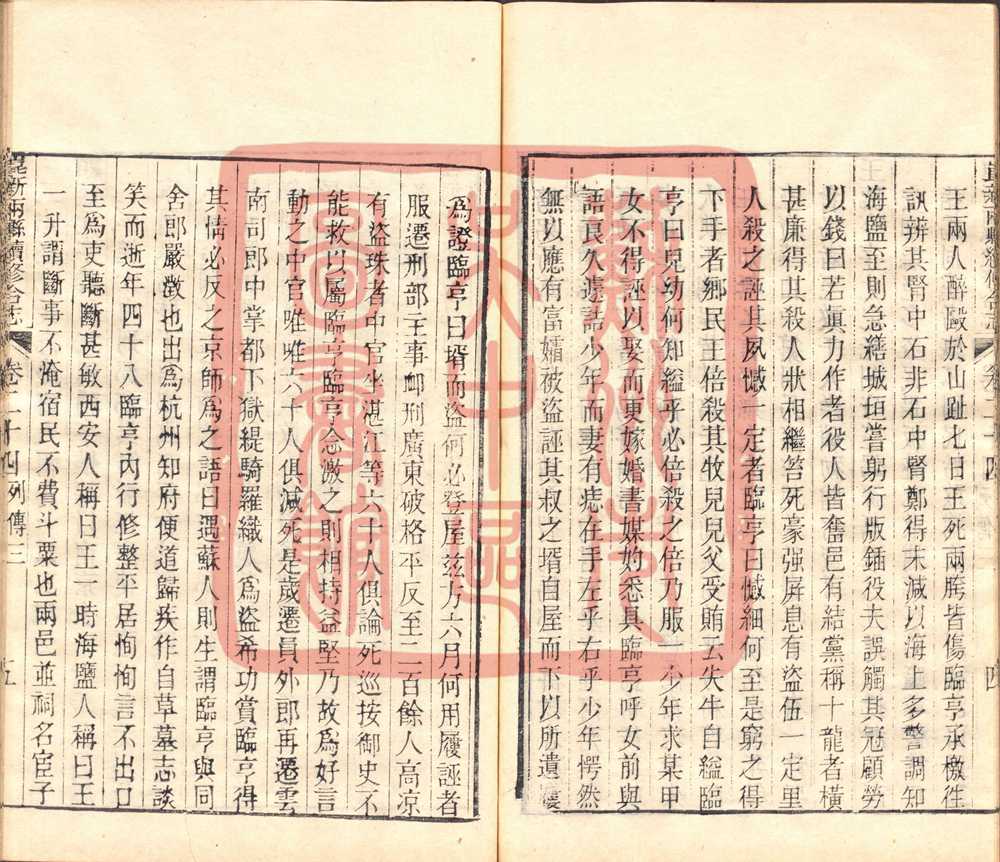 王兩人醉毆於山趾七日王死兩胯皆傷臨亨承檄徃
訊辨其腎中石非石中腎鄭得末減以海上多警調知
海鹽至則急繕城垣嘗躬行版鍤役夫誤觸其冠顧勞
以錢曰若眞力作者役人皆奮邑有結黨稱十龍者橫
甚廉得其殺人狀相繼笞死豪强屏息有盜伍一定里
人殺之誣其夙憾一定者臨亨曰憾細何至是窮之得
下手者鄉民王倍殺其牧兒兒父受賄云失牛自縊臨
亨曰兒幼何知縊乎必倍殺之倍乃服一少年求某甲
女不得誣以娶而更嫁婚書媒妁悉具臨亨呼女前與
語良久遽詰少年而妻有痣在手左乎右乎少年愕然
無以應有富孀破盜誣其叔之壻自屋而下以所遺履
爲證臨亨曰壻而盜何必登屋兹方六月何用履誣者
服遷刑部主事䘏刑廣東破格平反至二百餘人高凉
有盜珠者中官坐湛江等六十人俱論死巡按御史不
能救以屬臨亨臨亨念激之則相持益堅乃故爲好言
動之中官唯唯六十人俱減死是歲遷員外郎再遷雲
南司郎中掌都下獄緹騎羅織人爲盜希功賞臨亨得
其情必反之京師爲之語曰遇蘇人則生謂臨亨與同
舍郎嚴澂也出爲杭州知府便道歸疾作自草墓志談
笑而逝年四十八臨亨內行修整平居恂恂言不出口
至爲吏聽斷甚敏西安人稱曰王一時海鹽人稱曰王
一升謂斷事不淹宿民不費斗粟也兩邑並祠名宦子
崑新兩縣續修合志 卷二十四 列傳三 十五